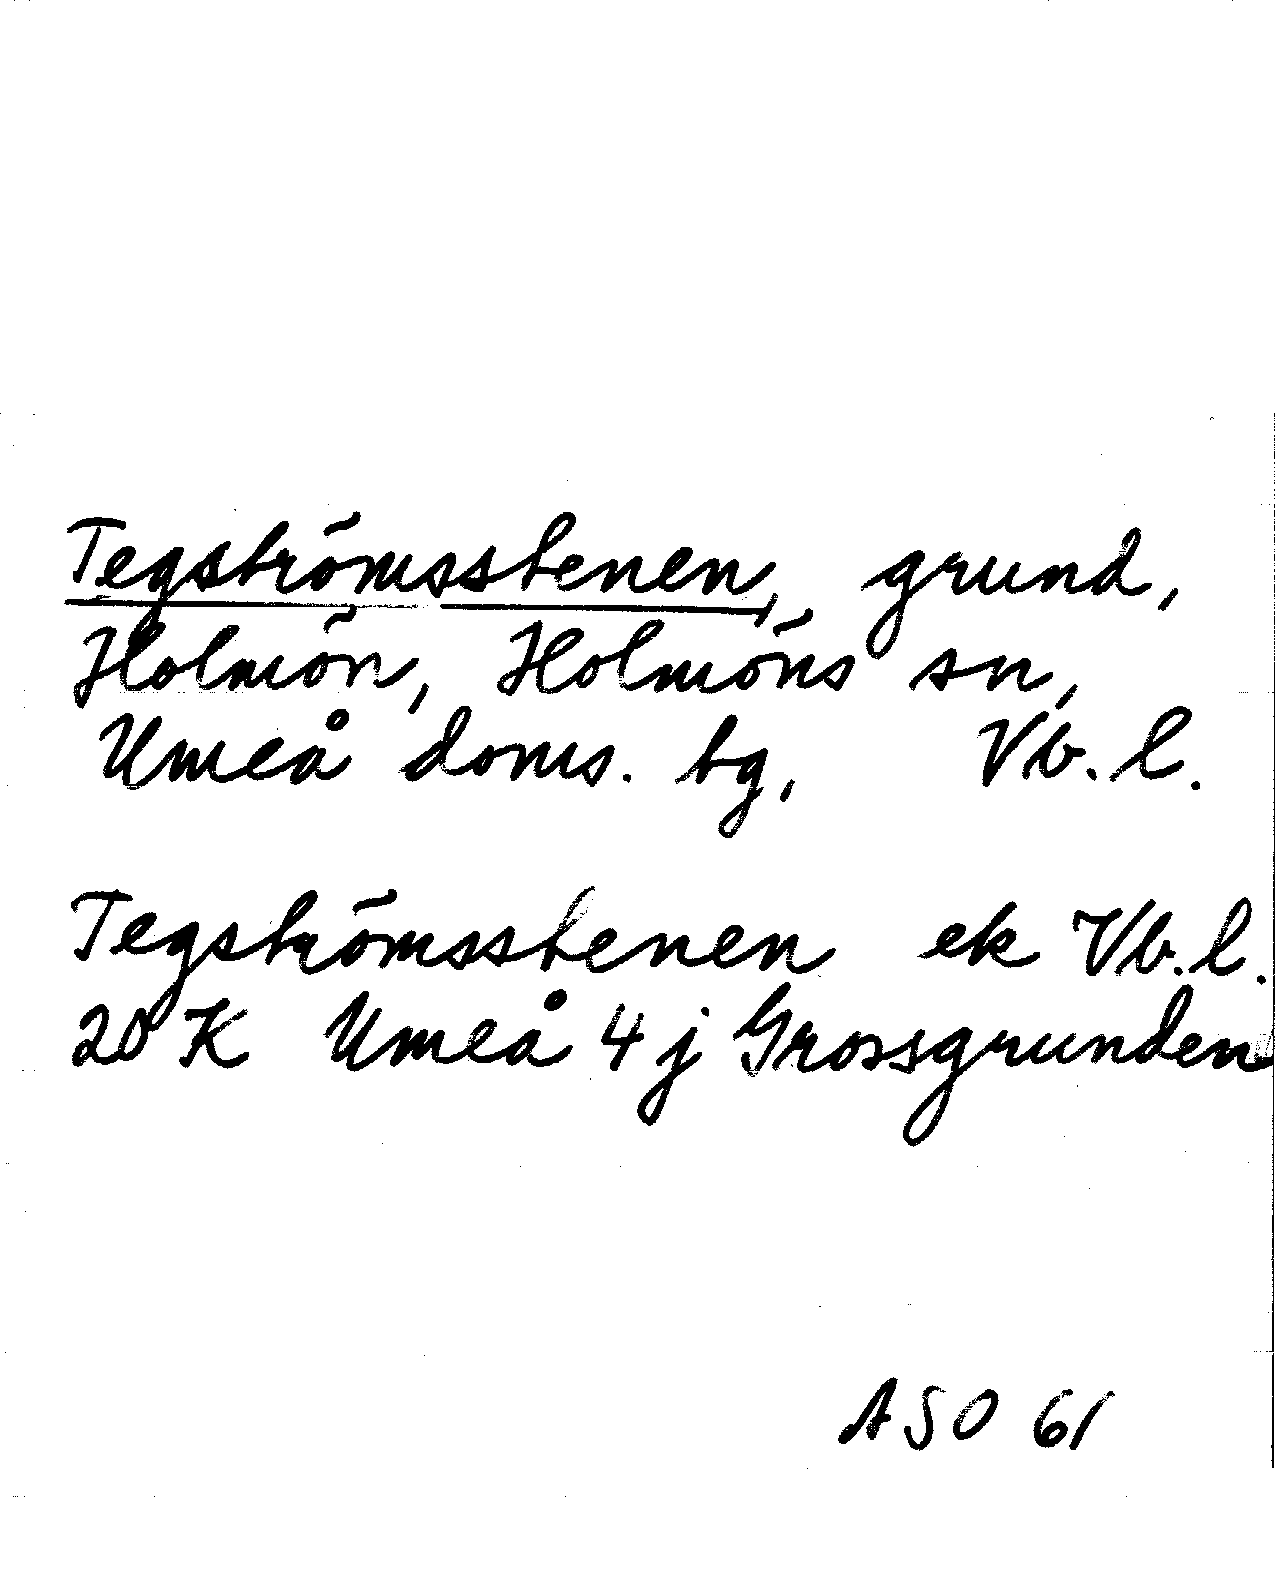 Tegströmsstenen, grund,
Holmön, Holmöns sn,
Umeå doms. tg, Vb. l.
Tegströmsstenen ek Vb. l.
20 K Umeå 4 j Grossgrunden
ASO 61